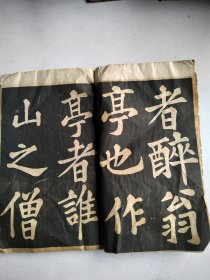 者醉翁
亭也作
亭者誰
山之僧